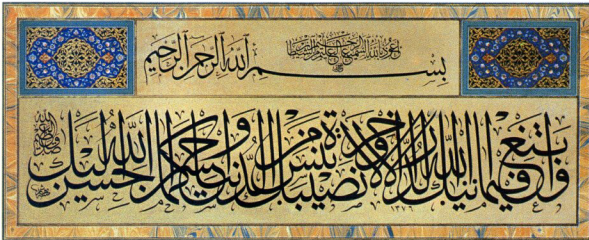 أعوذ بالله السميع العليم من الشيطان الرجيم
بسم الله الرحمن الرحيم
وابتغ فيما آتاك الله الدار الآخرة ولا تنس نصيبك من الدنيا وأحسن كما أحسن الله إليك